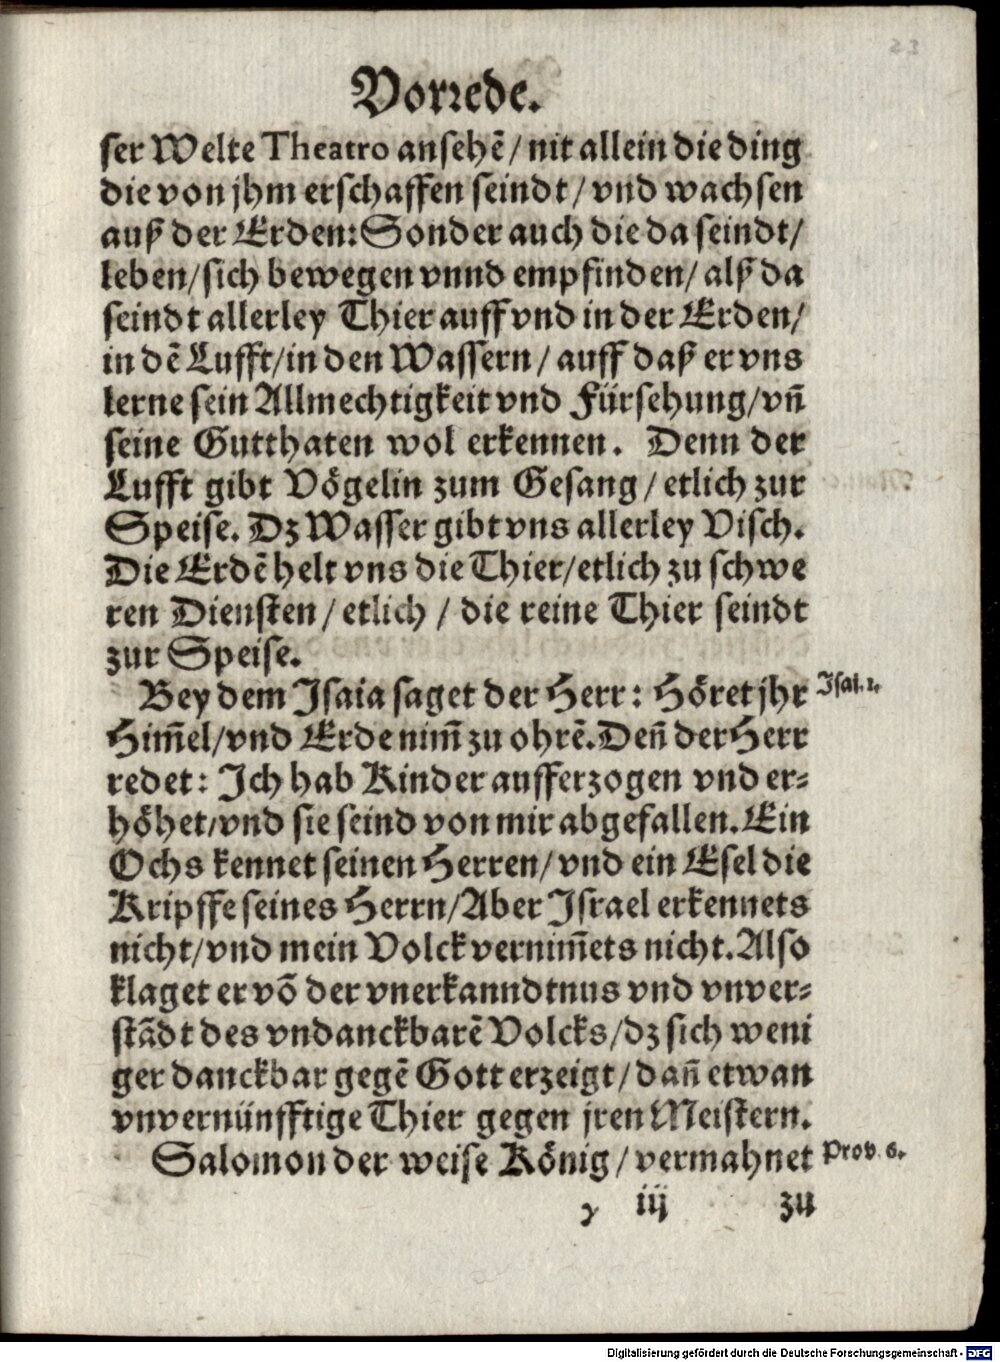 Vorrede.
ser Welte Theatro ansehē / nit allein die ding
die von jhm erschaffen seindt / vnd wachsen
auß der Erden: Sonder auch die da seindt /
leben / sich bewegen vnnd empfinden / alß da
seindt allerley Thier auff vnd in der Erden /
in dē Lufft / in den Wassern / auff daß er vns
lerne sein Allmechtigkeit vnd Fürsehung / vn̄
seine Gutthaten wol erkennen. Denn der
Lufft gibt Vögelin zum Gesang / etlich zur
Speise. Dz Wasser gibt vns allerley Visch.
Die Erdē helt vns die Thier / etlich zu schwe
ren Diensten / etlich / die reine Thier seindt
zur Speise.
Bey dem Isaia saget der Herr: Höret jhr Isai. 1.
Him̄el / vnd Erde nim̄ zu ohrē. Den̄ der Herr
redet: Ich hab Kinder aufferzogen vnd er-
höhet / vnd sie seind von mir abgefallen. Ein
Ochs kennet seinen Herren / vnd ein Esel die
Kripffe seines Herrn / Aber Israel erkennets
nicht / vnd mein Volck vernim̄ets nicht. Also
klaget er vō der vnerkanndtnus vnd vnver-
stādt des vndanckbarē Volcks / dz sich weni
ger danckbar gegē Gott erzeigt / dan̄ etwan
vnvernünfftige Thier gegen jren Meistern.
Salomon der weise König / vermahnet Prov. 6.
)( iij zu
Digitalisierung gefördert durch die Deutsche Forschungsgemeinschaft - DFG